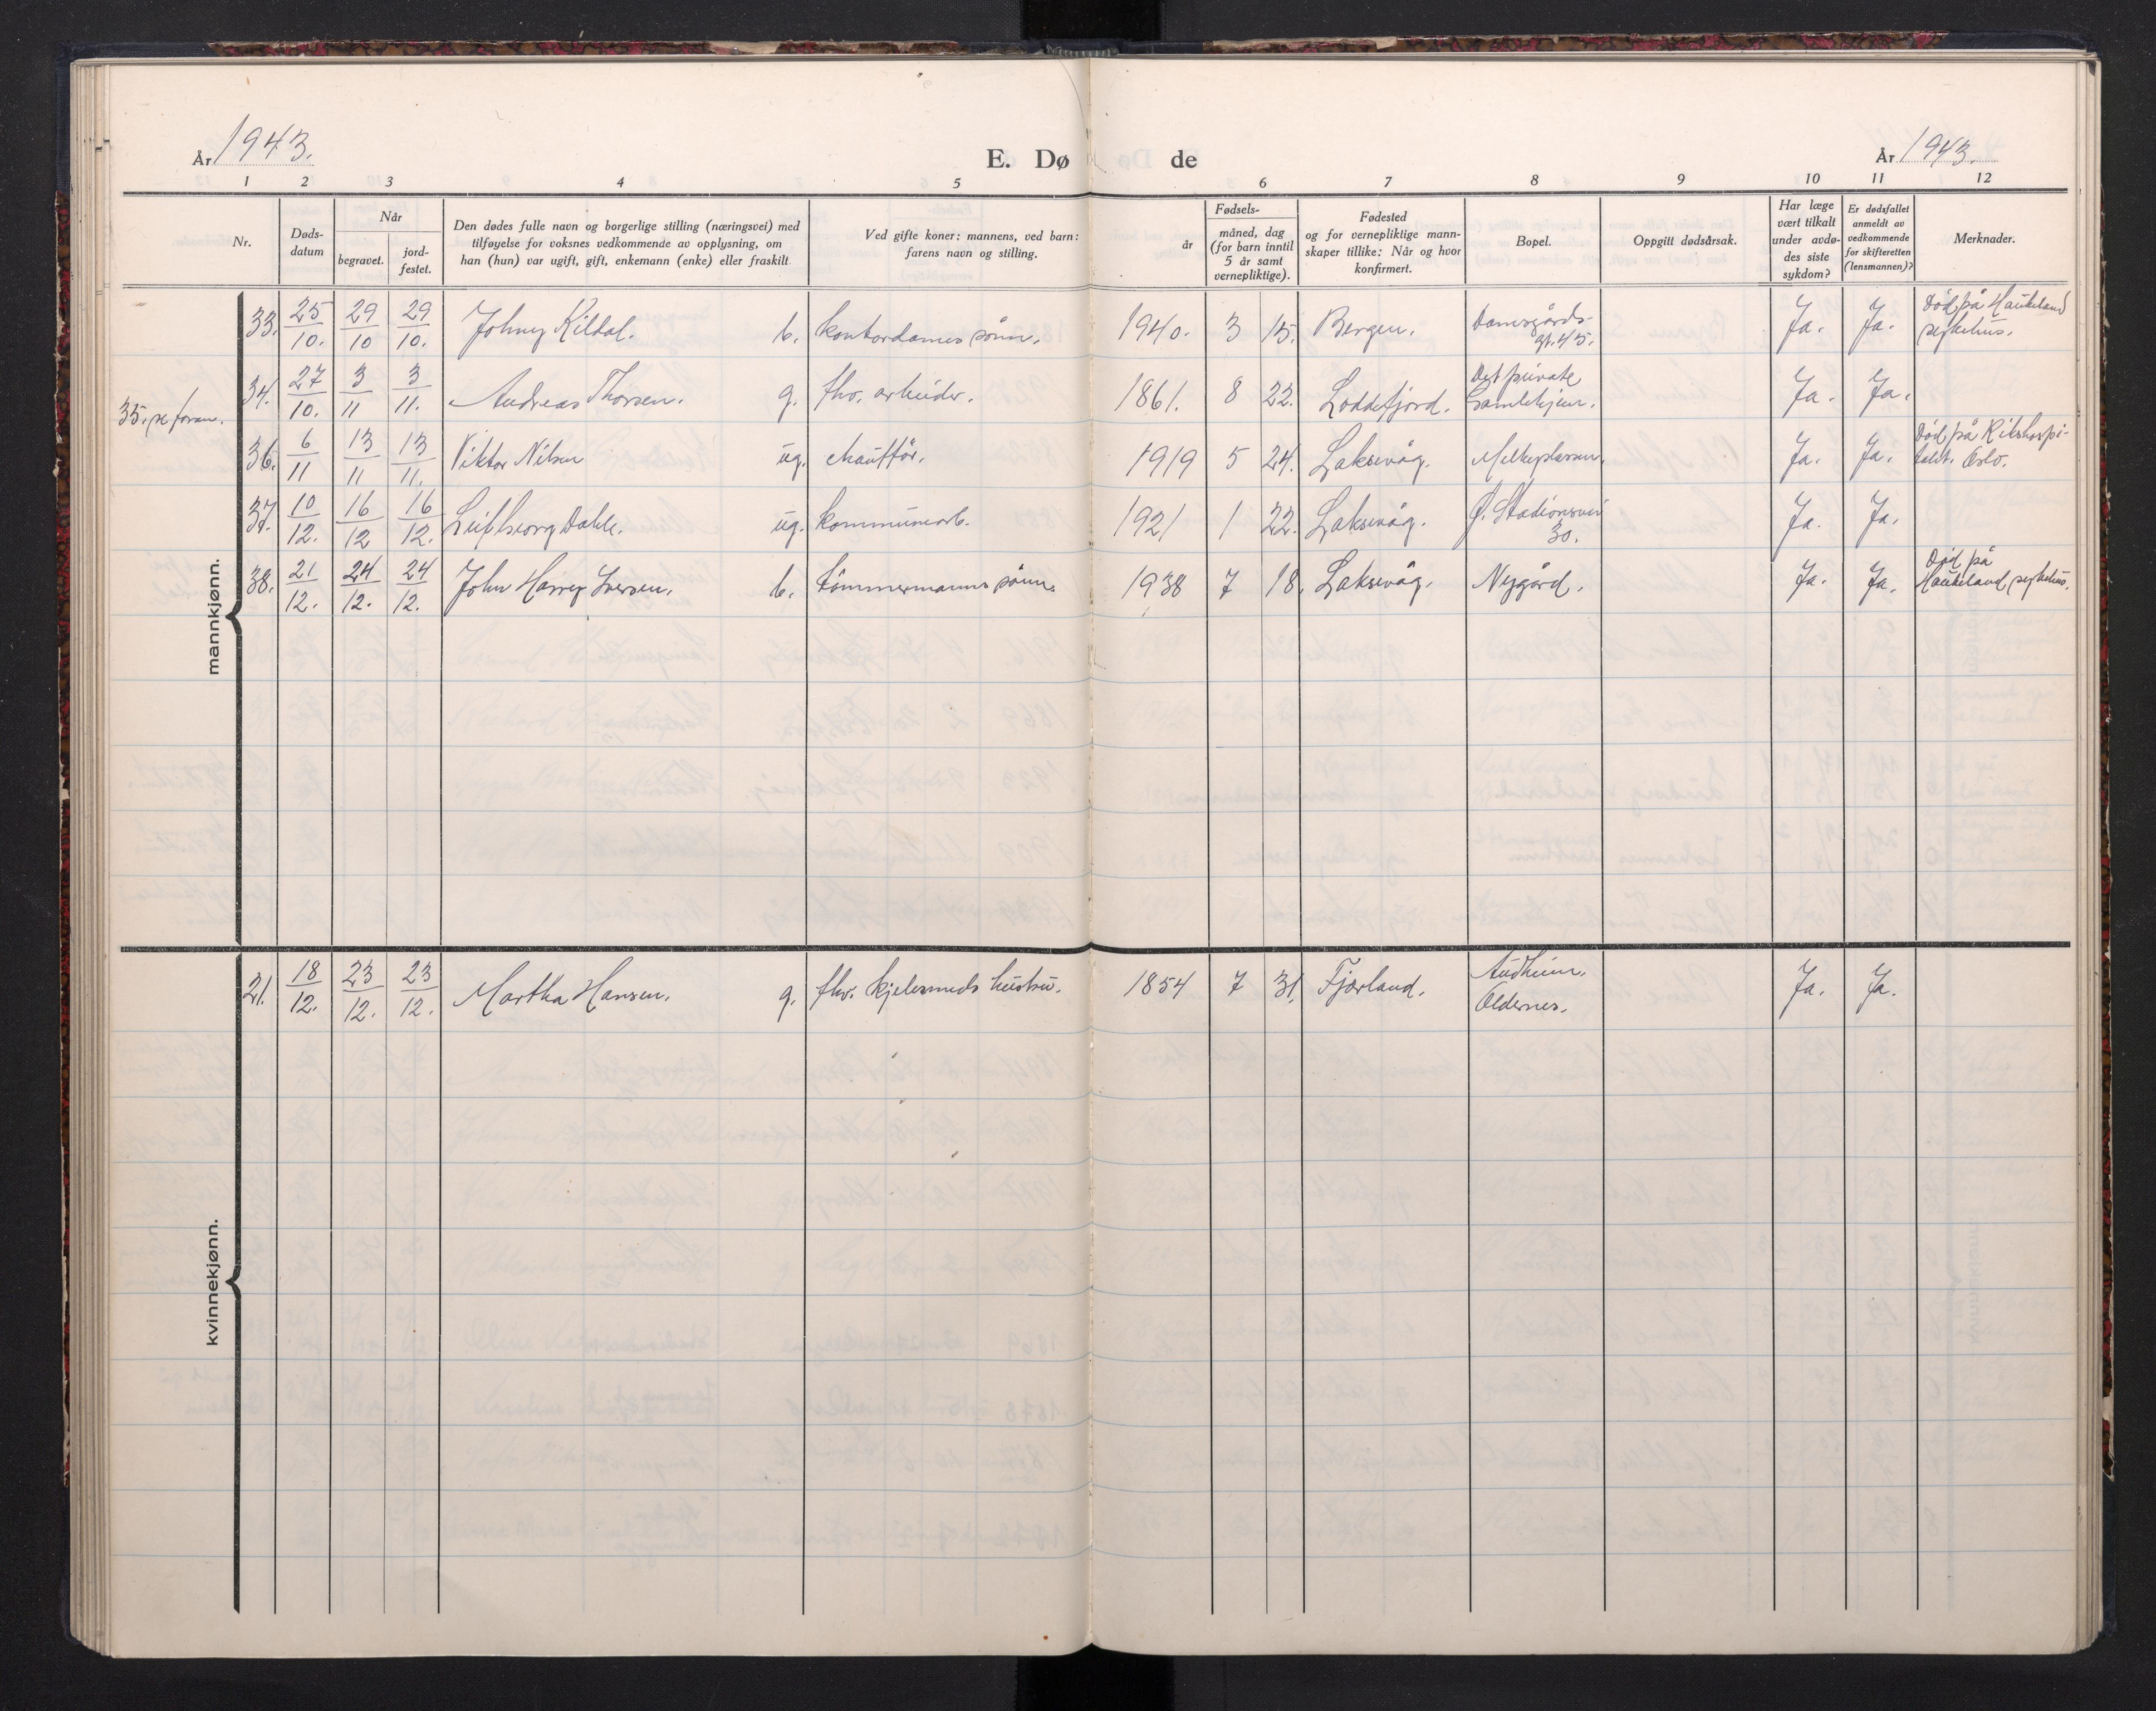 År 1943.
E. Døde
År 1943.
1 2 3 4 5 6 7 8 9 10 11 12
Nr.
Døds-
datum
Når
begravet.
jord-
festet.
Den dødes fulle navn og borgerlige stilling (næringsvei) med
tilføyelse for voksnes vedkommende av opplysning, om
han (hun) var ugift, gift, enkemann (enke) eller fraskilt.
Ved gifte koner: mannens, ved barn:
farens navn og stilling.
år
Fødsels-
måned, dag
(for barn inntil
5 år samt
vernepliktige).
Fødested
og for vernepliktige mann-
skaper tillike: Når og hvor
konfirmert.
Bopel.
Oppgitt dødsårsak.
Har læge
vært tilkalt
under avdø-
des siste
sykdom?
Er dødsfallet
anmeldt av
vedkommende
for skifteretten
(lensmannen)?
Merknader.
mannkjønn.
33. 25/10. 29/10 29/10. Johny Kildal. b. kontordames sønn. 1940. 3 15. Bergen. Damsgårds-
gt. 45. Ja. Ja. Død på Haukeland
sykehus.
34. 27/10. 3/11 3/11. Andreas Thorsen. g. fhv. arbeider. 1861. 8 22. Loddefjord. Det private
Gamlehjem. Ja. Ja.
35. se foran.
36. 6/11 13/11 13/11. Viktor Nilsen ug. chauffør. 1919 5 24. Laksevåg. Melkeplassen. Ja. Ja. Død på Rikshospi-
talet. Oslo.
37. 10/12. 16/12 16/12. Leif Georg Dahle. ug. kommunearb. 1921 1 22. Laksevåg. Ø. Stadionsvei
30. Ja. Ja.
38. 21/12. 24/12. 24/12. John Harry Iversen. b. tømmermanns sønn. 1938 7 18. Laksevåg. Nygård. Ja. Ja. Død på
Haukeland sykehus.
kvinnekjønn.
21. 18/12. 23/12. 23/12. Martha Hansen. g. fhv. kjelesmeds hustru. 1854 7 31. Fjærland. Audheim.
Oldernes. Ja. Ja.